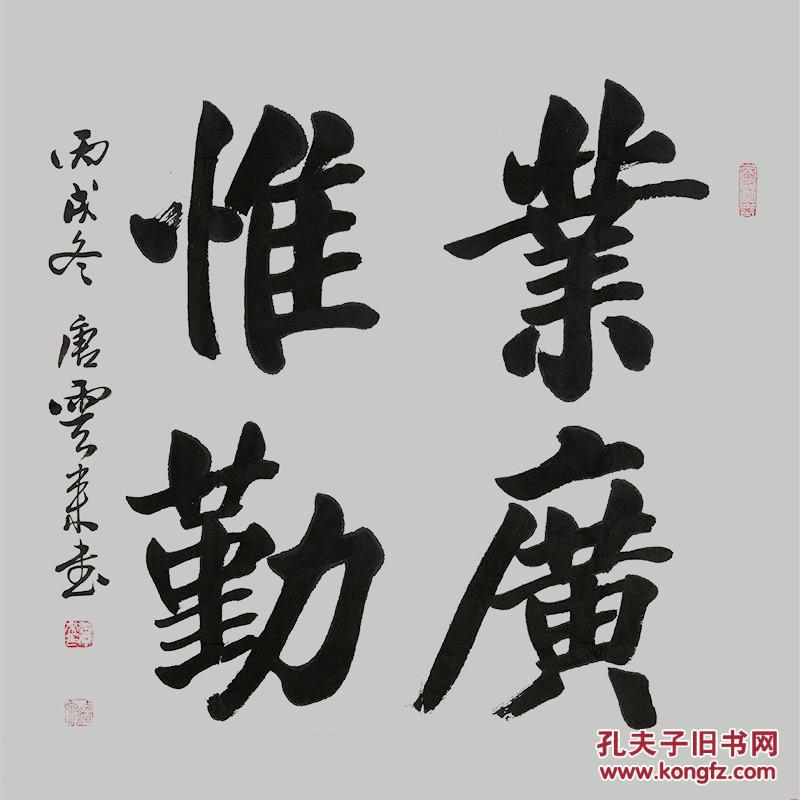 業廣
惟勤
丙戌冬 唐雲來書
孔夫子旧书网
www.kongfz.com